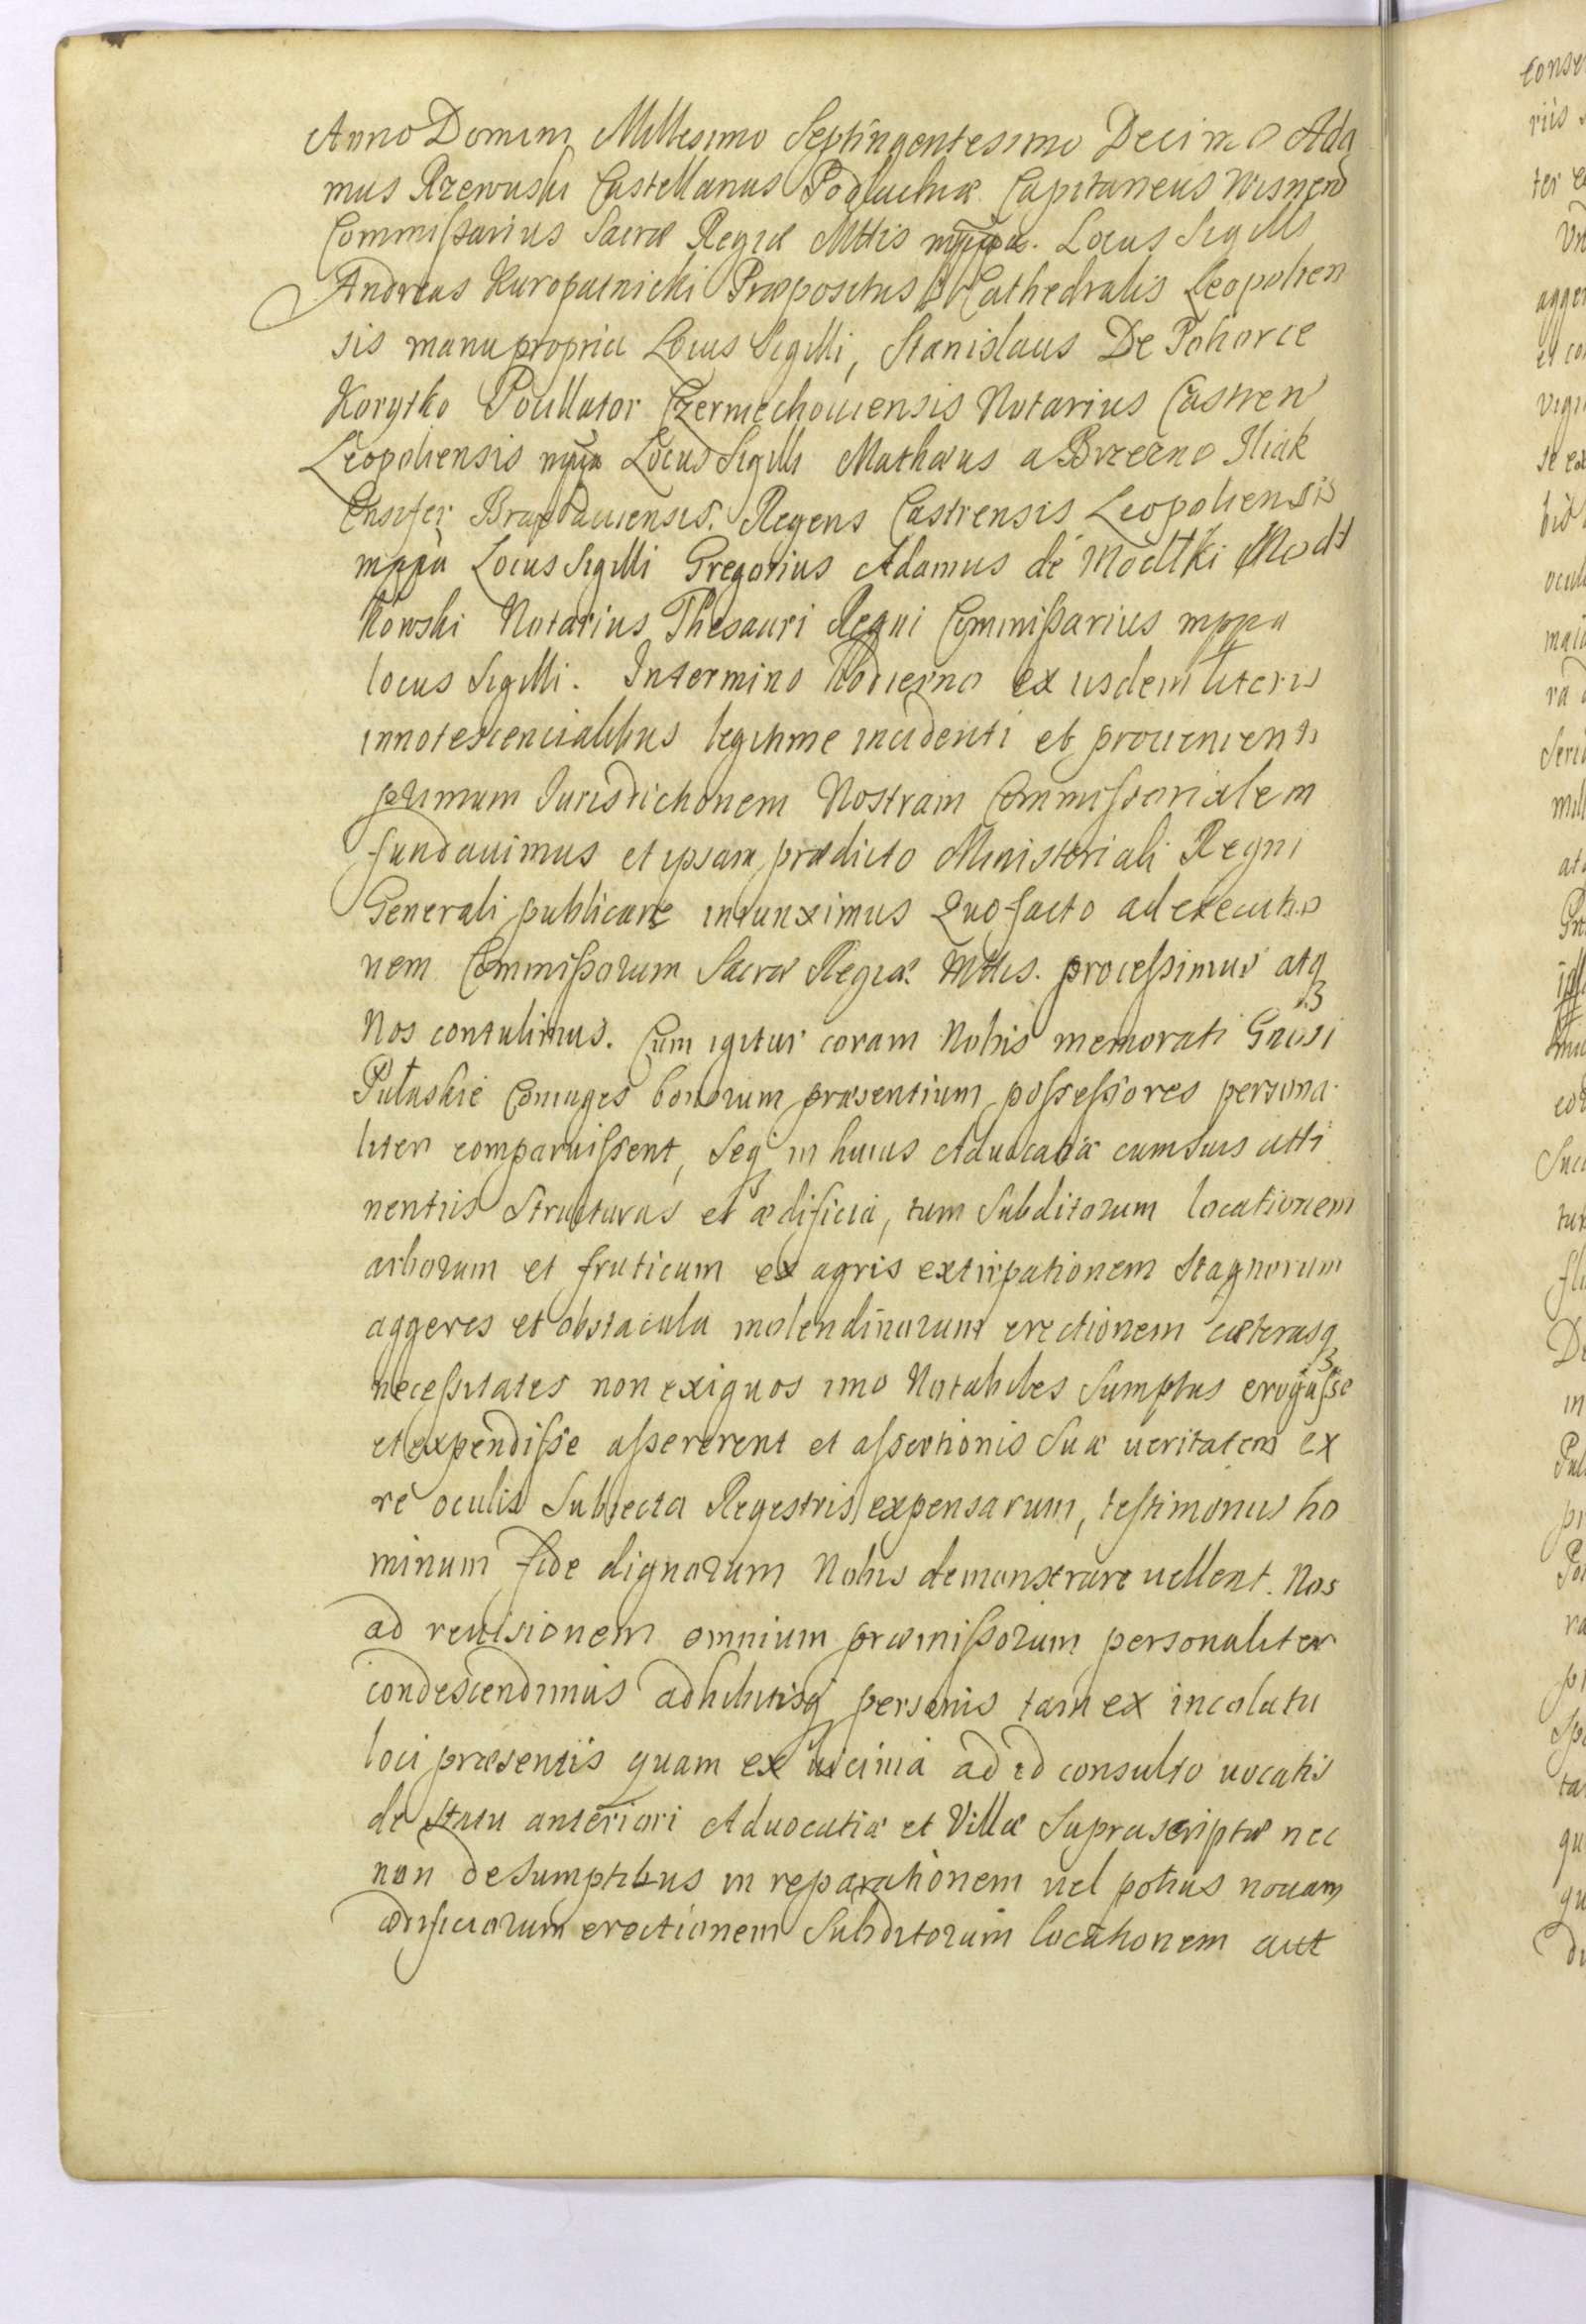 Anno Domini Millesimo Septingentesimo Decimo Ada
mus Rzewuski Castellanus Podlachiæ Capitaneus Wisnen
Commißarius Sacræ Regiæ Mttis mppa. Locus Sigilli
Andreas Kuropatnicki Præpositus Cathedralis Leopolien
sis manu propria Locus Sigilli, Stanislaus De Pohorce
Korytko Pocillator Czerniechoviensis Notarius Castren
Leopoliensis mppa Locus Sigilli Mathæus a Brzezno Iliak
Ensifer Bracdaviensis. Regens Castrensis Leopoliensis
mppa Locus Sigilli Gregorius Adamus de Modtki Modt
kowski Notarius Thesauri Regni Commißarius mppa
locus Sigilli. In termino hodierno ex iisdem literis
innotescencialibus legitime incidenti et provenienti
primum Iurisdictionem Nostram Commissorialem
fundavimus et ipsam prædicto Ministeriali Regni
Generali publicare iniunximus Quo facto ad executio
nem Commißorum Sacræ Regiæ Mttis. proceßimus atq3
Nos contulimus. Cum igitur coram Nobis memorati Gnosi
Pułaskie Coniuges bonorum præsentium poßeßores persona
liter comparuißent, Seq3 in huius Advocatia cum suis atti
nentiis Structuras et ædificia, tum Subditorum locationem
arborum et fruticum ex agris extirpationem Stagnorum
aggeres et obstacula molendinorum erectionem cæterasq3
neceßitates non exiguos imo Notabiles Sumptus erogaße
et expendiße aßererent et aßertionis Suæ veritatem ex
re oculis Subiecta Regestris expensarum, testimoniis ho
minum fide dignorum Nobis demonstrare vellent. Nos
ad revisionem omnium præmißorum personaliter
condescendimus adhibitisq3 personis tam ex incolatu
loci præsentis quam ex vicinia ad id consulto vocatis
de statu anteriori Advocatiæ et Villæ Suprascriptæ nec
non de Sumptibus in reparationem vel potius novam
ædificiorum erectionem Subditorum locationem aut